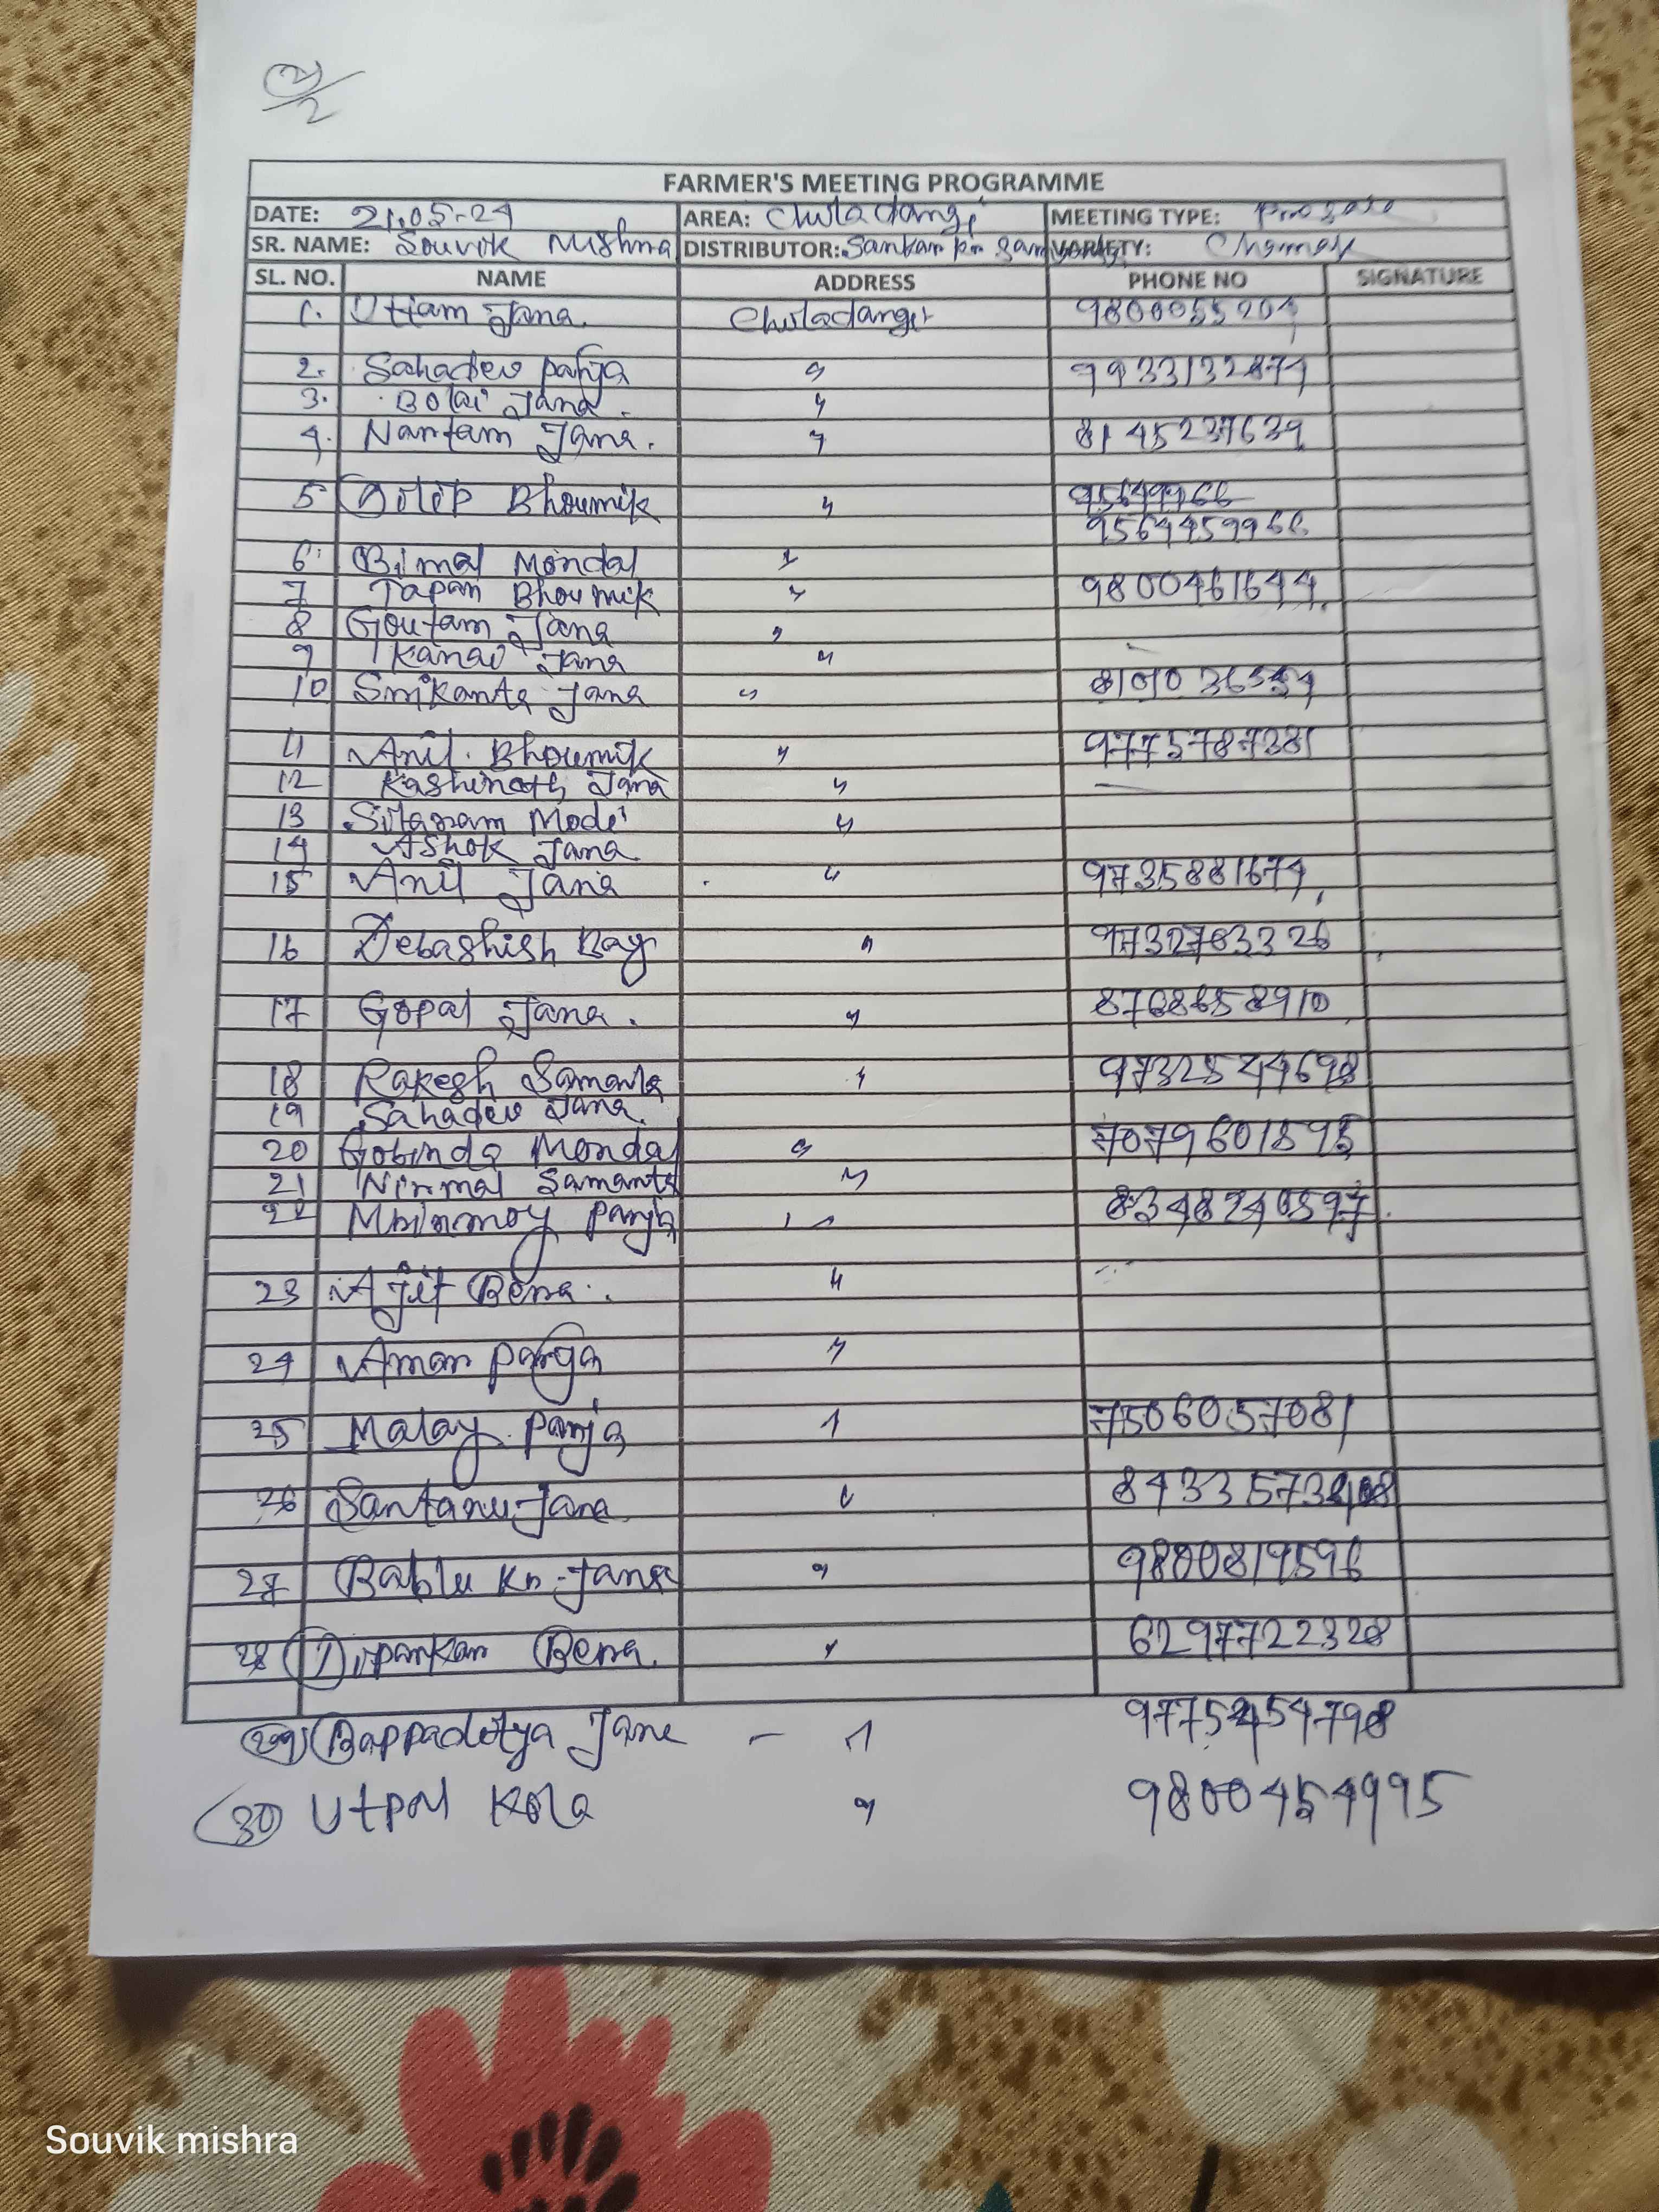 2/2
FARMER'S MEETING PROGRAMME
DATE: 21.05-24 AREA: Chuladangi MEETING TYPE:
SR. NAME: Souvik Mishra DISTRIBUTOR: Sankar kr VARIETY: Chamak
SL. NO. NAME ADDRESS PHONE NO SIGNATURE
1. Uttam Jana. Chuladangi 9800055204
2. Sahadev Parja " 9933132874
3. Bolai Jana. "
4. Nantam Jana. " 8145237639
5 Dilip Bhoumik "
9564459966
6. Bimal Mondal "
7 Tapan Bhoumik " 9800461644
8 Goutam Jana "
9 Kanai Jana "
10 Srikanta Jana "
11 Anil Bhoumik " 9775787381
12 Kashinath Jana " —
13 Sitaram Modi "
14 Ashok Jana
15 Anil Jana " 9735881674
16 Debashish Bag " 9732783326
17 Gopal Jana. " 8768658910
18 Rakesh Samanta " 9732544698
19 Sahadev Jana.
20 Gobinda Mondal " 7079601595
21 Nirmal Samanta "
22 Mrinmoy Panja " 8348240597
23 Ajit Bera. "
24 Amar Parja "
25 Malay Panja " 7506057081
26 Santanu Jana "
27 Bablu Kr. Jana " 9800819596
28 Dipankar Bera. " 6297722328
29 Bappaditya Jana - " 9775454798
30 Utpal Kola " 9800454995
Souvik mishra